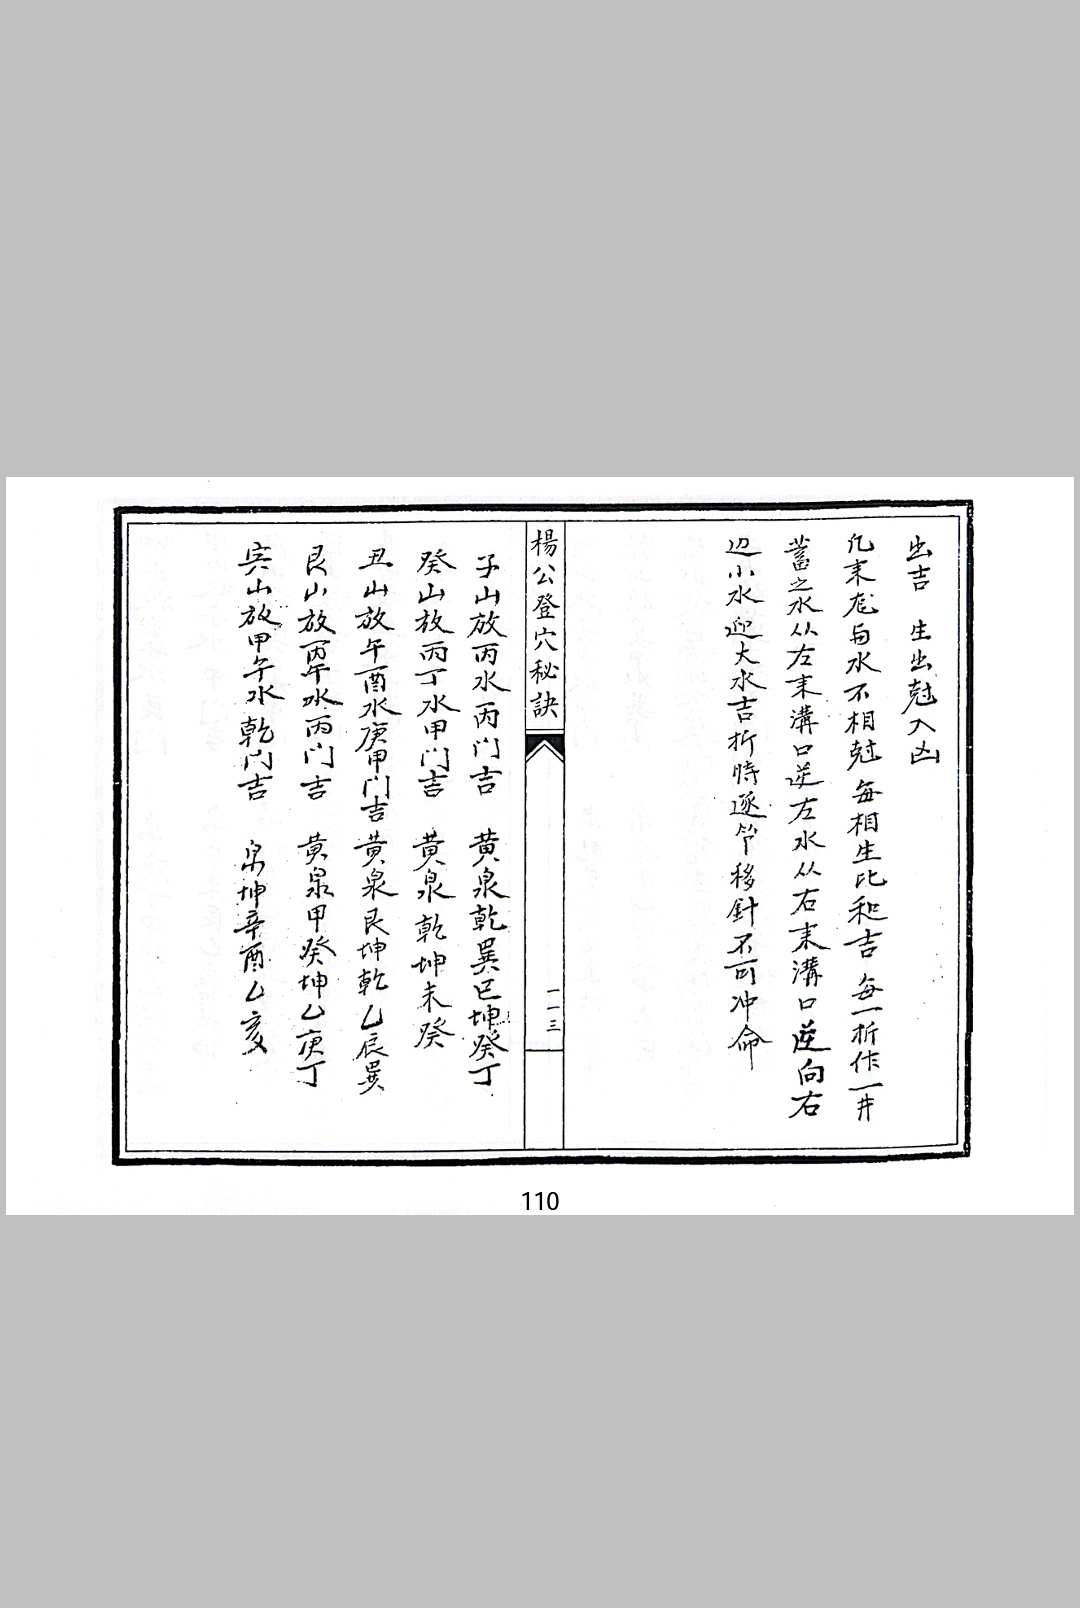 出吉 生出尅入凶
凡来龙与水不相尅 每相生比和吉 每一折作一井
蓄之水从左来溝口逆左水从右来溝口逆向右
边小水迎大水吉折時逐节移針不可冲命
楊公登穴秘訣
一一三
子山放丙水丙门吉 黄泉乾巽巳坤癸丁
癸山放丙丁水甲门吉 黄泉乾坤未癸
丑山放午酉水庚甲门吉 黄泉艮坤乾乙辰巽
艮山放丙午水丙门吉 黄泉甲癸坤乙庚丁
寅山放甲午水乾门吉 泉坤辛酉乙亥
110